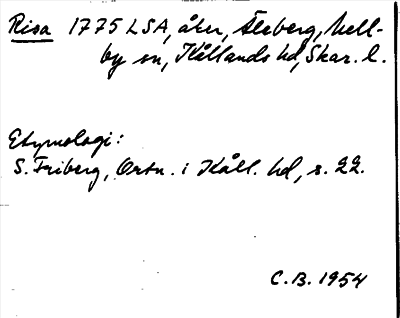 Risa 1775 LSA, åker, Åleberg, Mell-
by sn, Kållands hd, Skar. l.
Etymologi:
S. Friberg, Ortn. i Kåll. hd, s. 22.
C.B. 1954